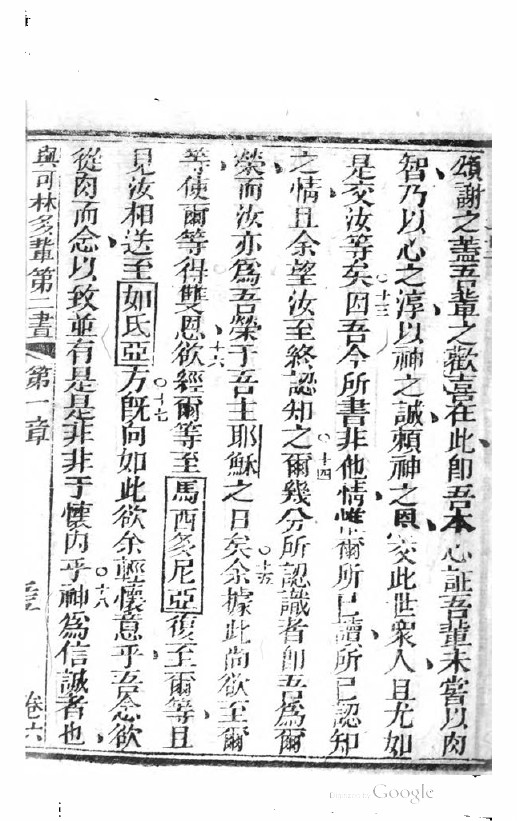 頌謝之蓋吾輩之歡喜在此卽吾本心証吾輩未嘗以肉
智乃以心之淳以神之誠賴神之恩交此世衆人且尤如
是交汝等矣○十三因吾今所書非他情惟爾所已讀所已認知
之情且余望汝至終認知之○十四爾幾分所認識者卽吾爲爾
榮而汝亦爲吾榮于吾主耶穌之日矣○十五余據此尙欲至爾
等使爾等得雙恩○十六欲經爾等至馬西多尼亞復至爾等且
見汝相送至如氐亞方○十七旣向如此欲余輕懷意乎吾念欲
從肉而念以致並有是是非非于懷內乎○十八神爲信誠者也
與可林多輩第二書 第一章 卷六
Digitized by Google